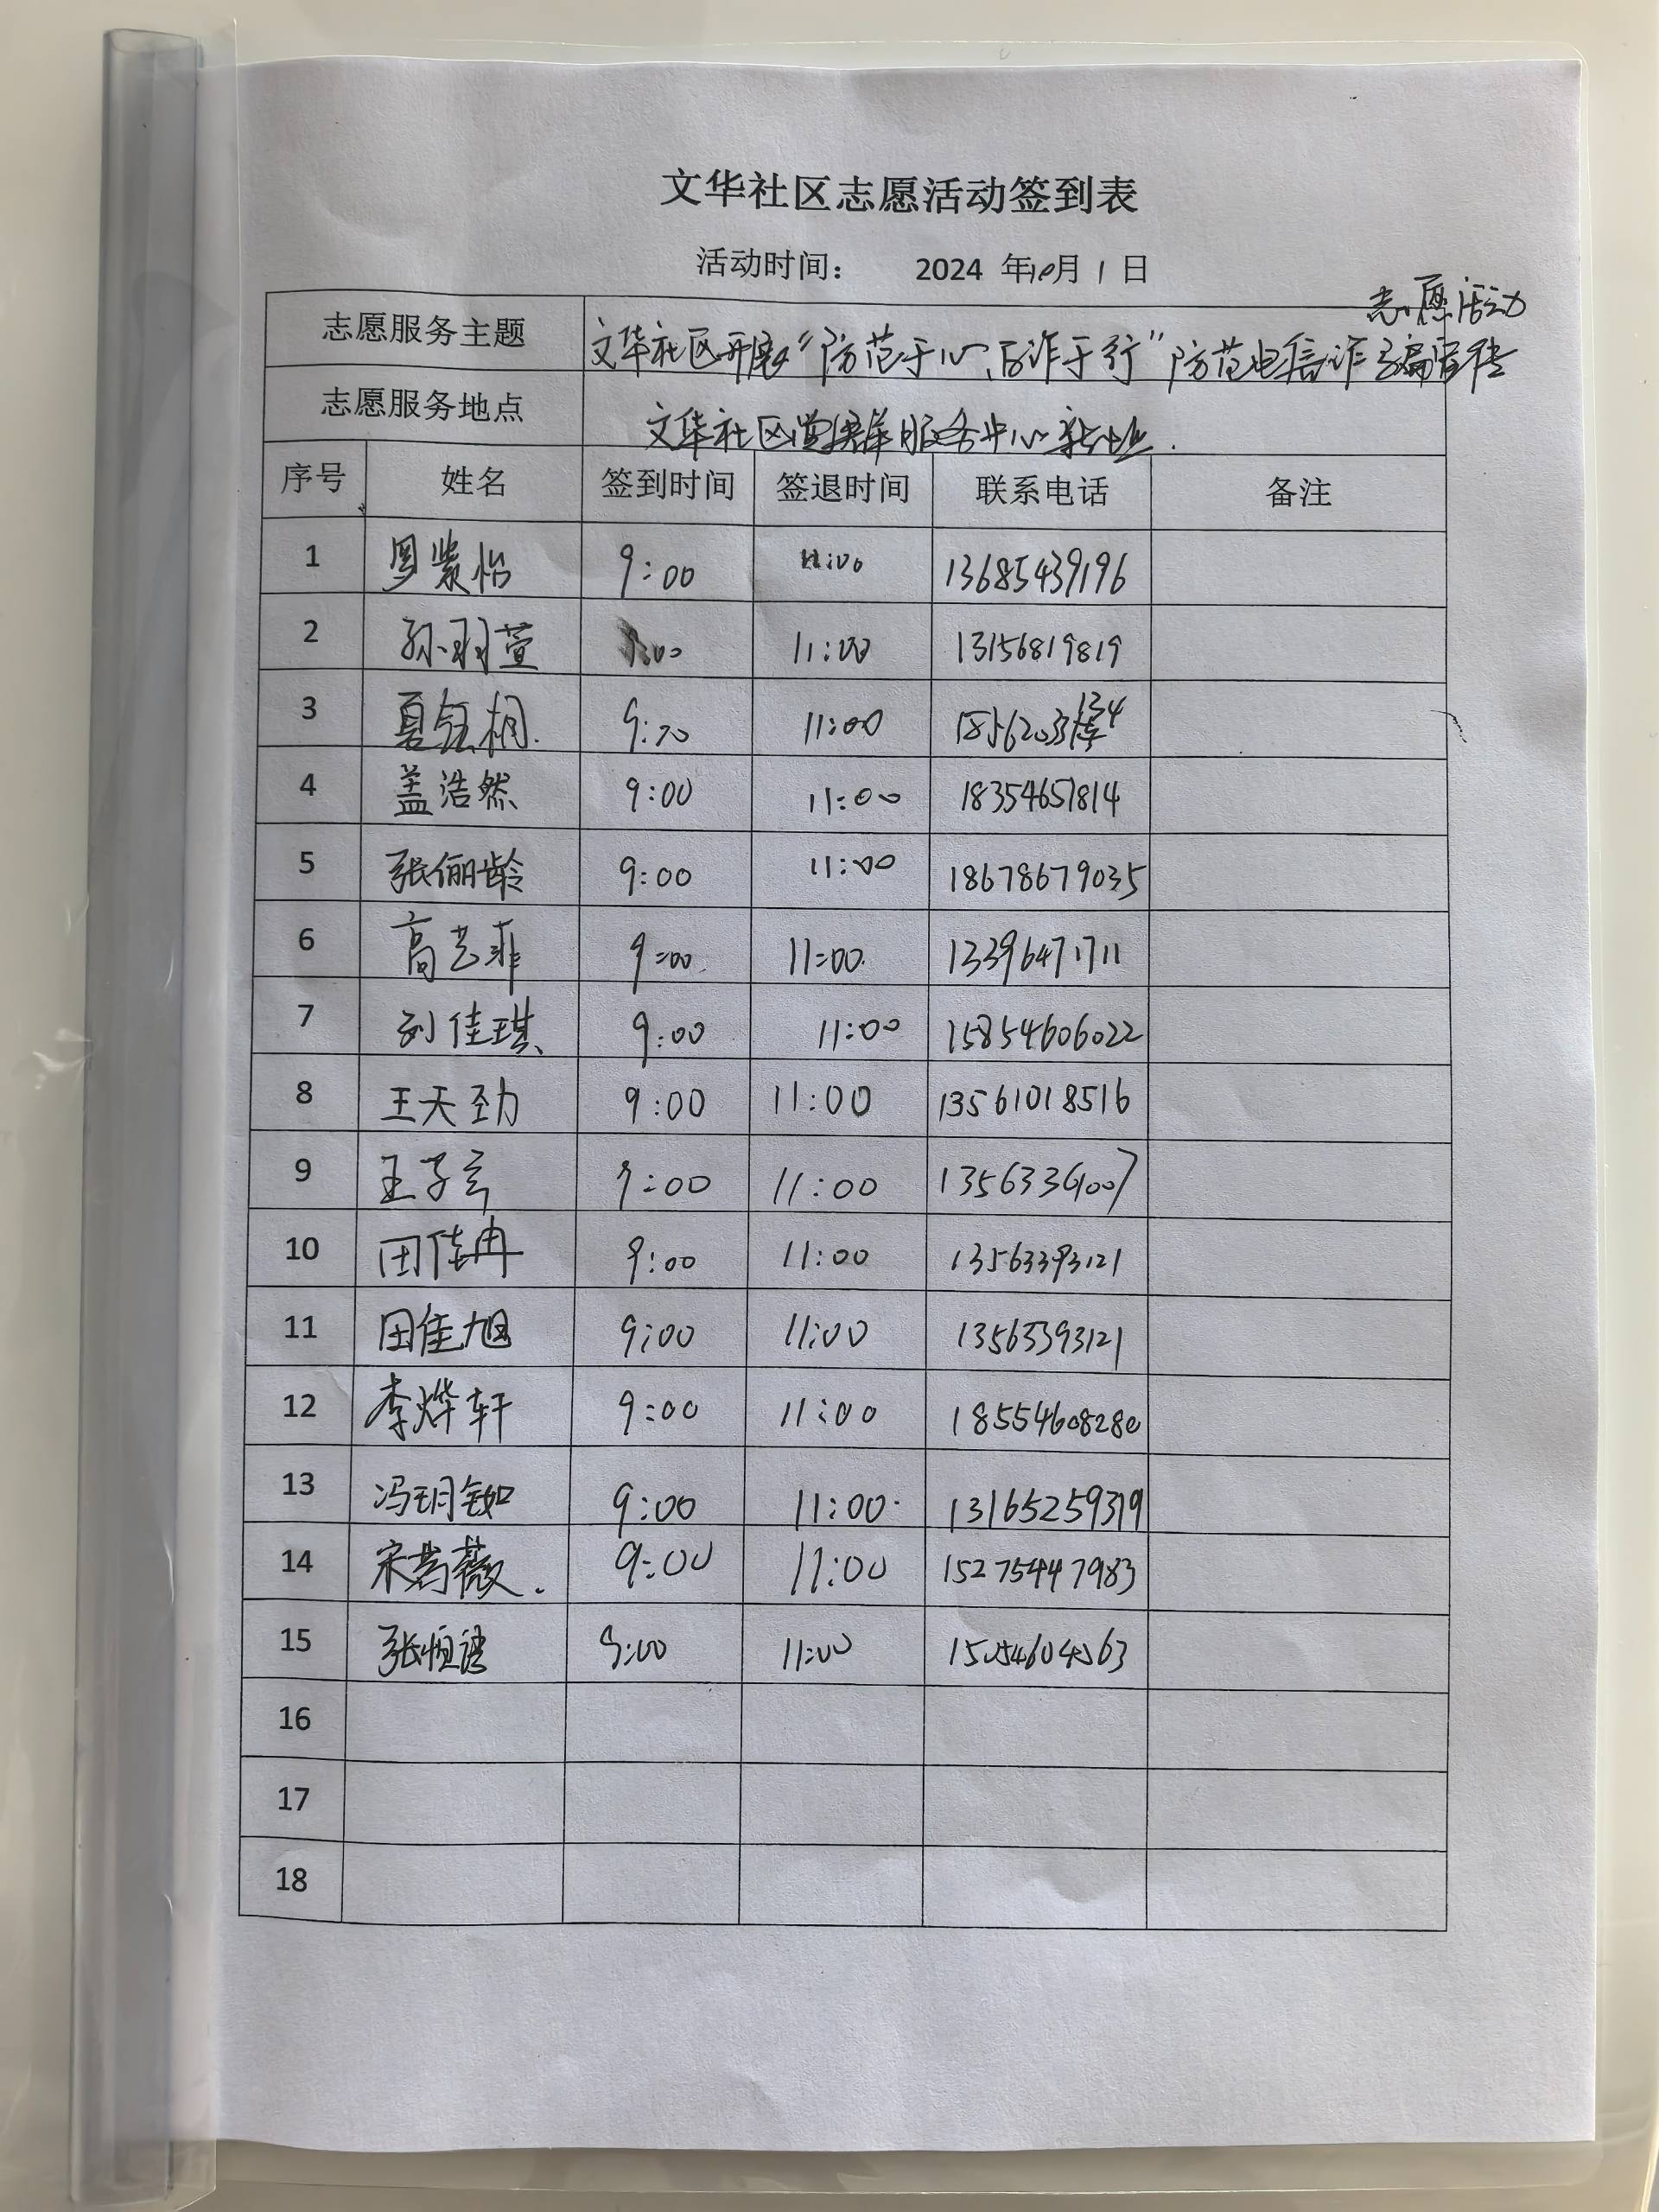 文华社区志愿活动签到表
活动时间： 2024 年10月1日
志愿活动
志愿服务主题 文华社区开展“防范于心、反诈于行”防范电信诈骗宣传
志愿服务地点 文华社区党群服务中心新址.
序号 姓名 签到时间 签退时间 联系电话 备注
1 罗紫怡 9:00 11:00 13685439196
2 孙羽萱 9:00 11:00 13156819819
3 夏钰桐. 11:00
4 盖浩然 9:00 11:00 18354657814
5 张俪龄 9:00 11:00 18678679035
6 高艺菲 9:00 11:00 13396471711
7 刘佳琪 9:00 11:00 15854606022
8 王天劲 9:00 11:00 13561018516
9 王子玄 9:00 11:00
10 田佳冉 9:00 11:00 13563393121
11 田佳旭 9:00 11:00 13563393121
12 李烨轩 9:00 11:00 18554608280
13 冯玥铷 9:00 11:00 13165259319
14 宋蔷薇. 9:00 11:00 15275447983
15 张恒 9:00 11:00
16
17
18